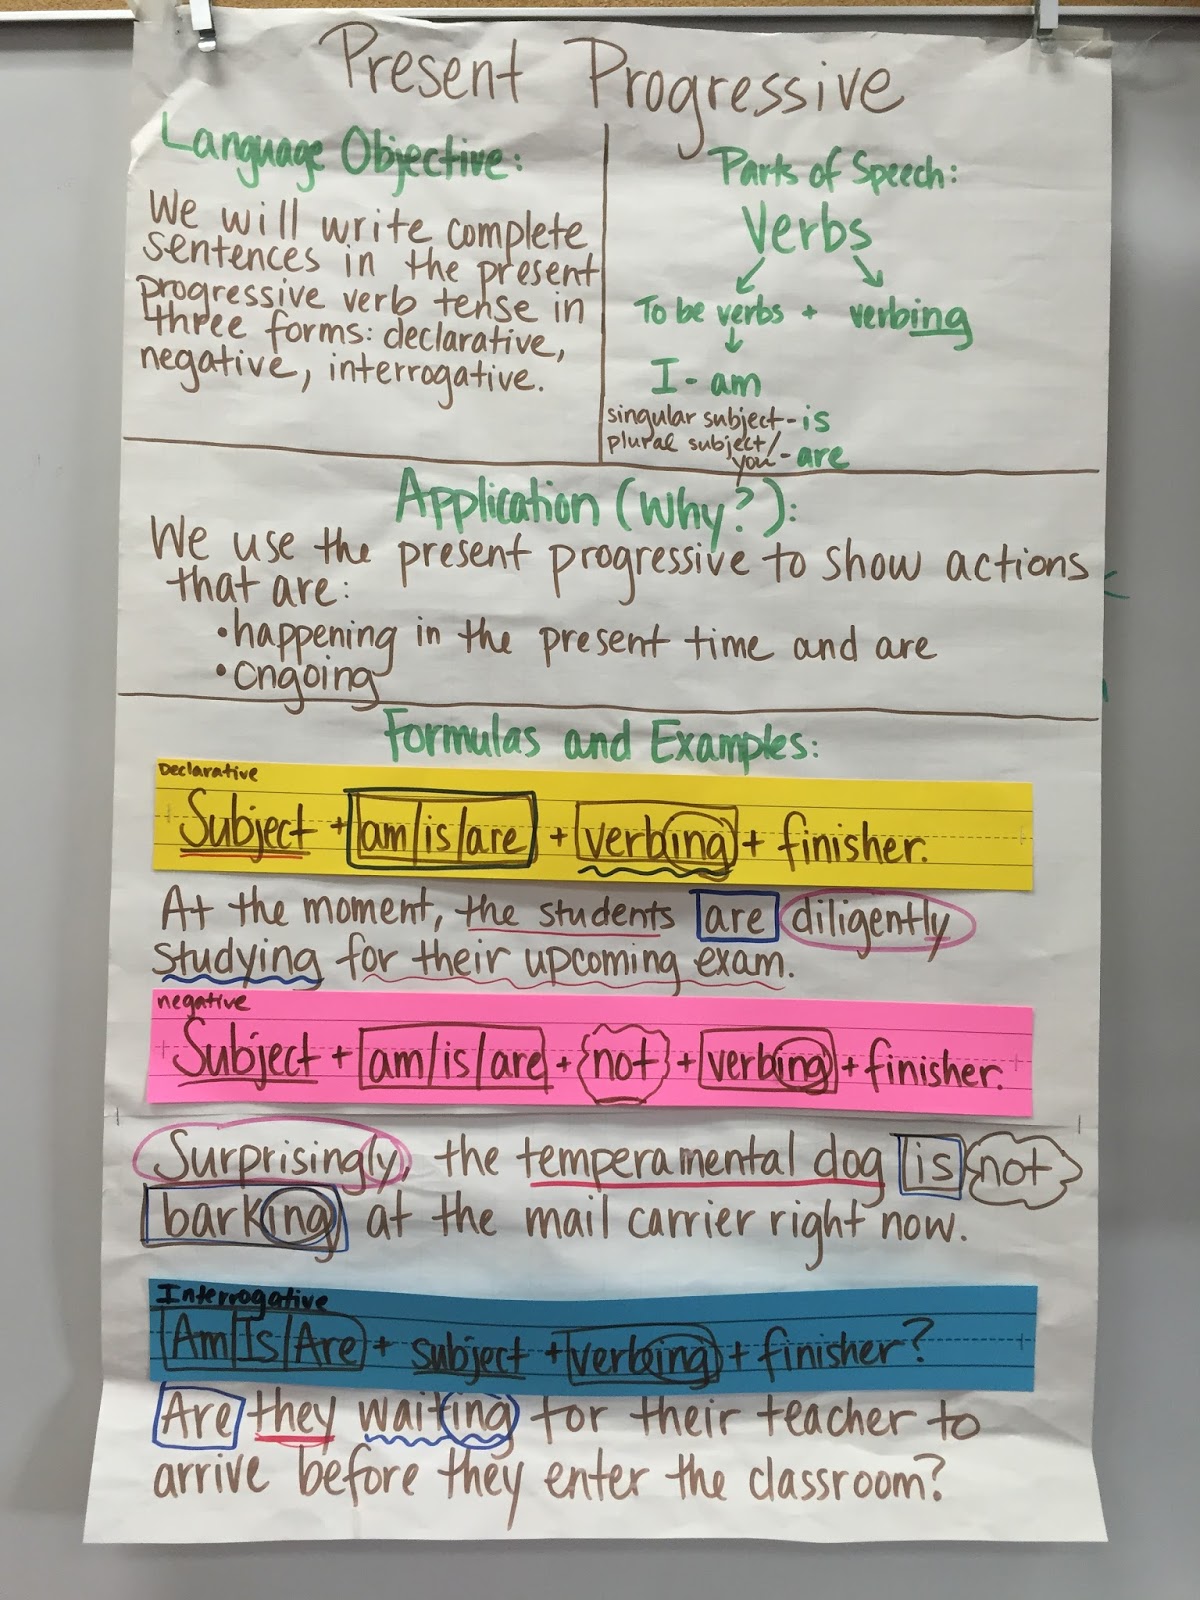 Present Progressive
Language Objective:
We will write complete
sentences in the present
progressive verb tense in
three forms: declarative,
negative, interrogative.
Parts of Speech:
Verbs
To be verbs + verbing
I - am
singular subject - is
plural subject/
you - are
Application (Why?):
We use the present progressive to show actions
that are:
• happening in the present time and are
• ongoing
Formulas and Examples:
Declarative
Subject + am/is/are + verbing + finisher.
At the moment, the students are diligently
studying for their upcoming exam.
negative
Subject + am/is/are + not + verbing + finisher.
Surprisingly, the temperamental dog is not
barking at the mail carrier right now.
Interrogative
Am/Is/Are + subject + verbing + finisher?
Are they waiting for their teacher to
arrive before they enter the classroom?